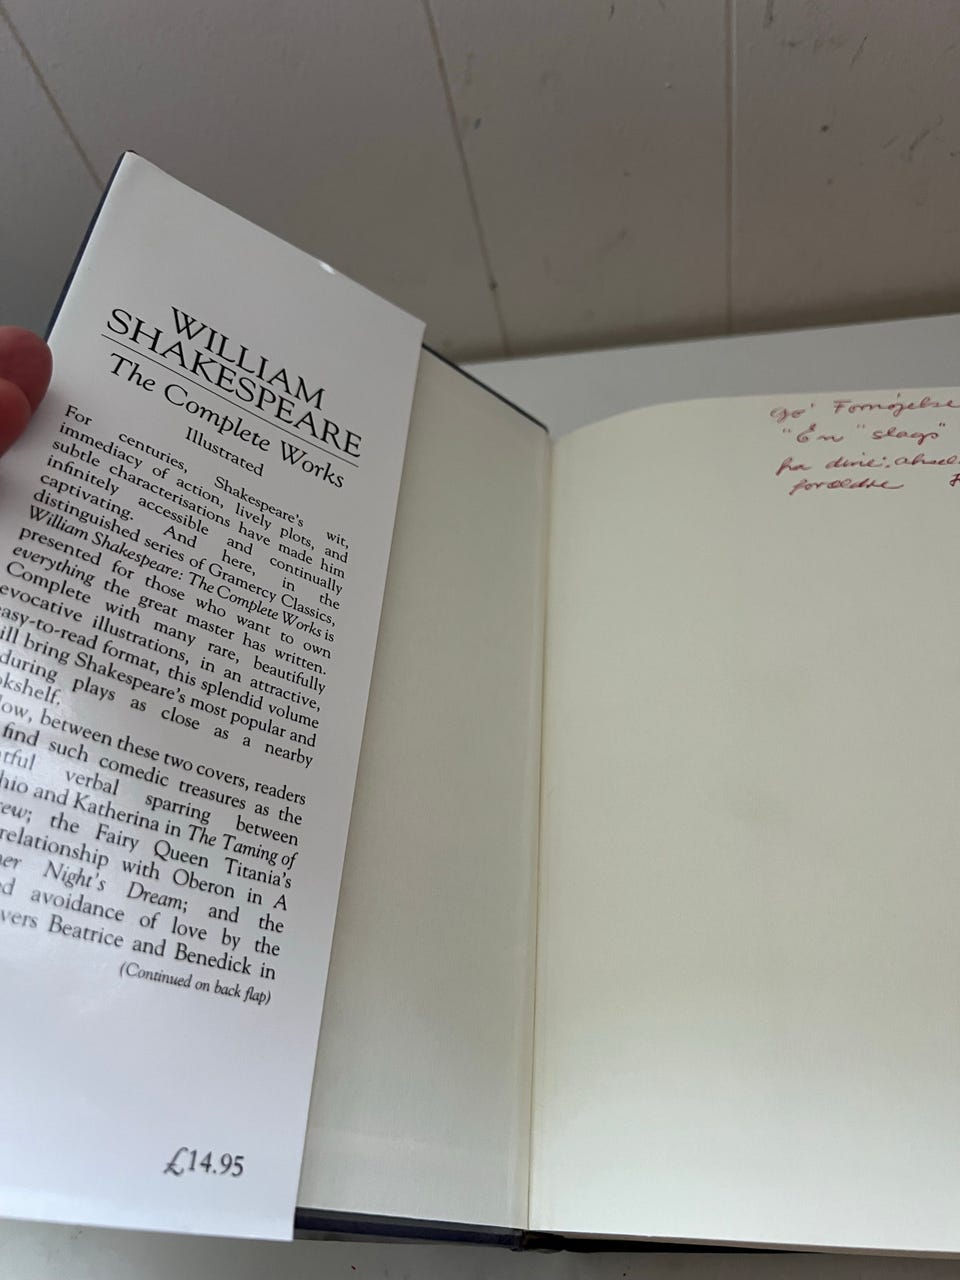 WILLIAM
SHAKESPEARE
The Complete Works
Illustrated
For centuries, Shakespeare's wit,
immediacy of action, lively plots, and
subtle characterisations have made him
infinitely accessible and continually
captivating. And here, in the
distinguished series of Gramercy Classics,
William Shakespeare: The Complete Works is
presented for those who want to own
everything the great master has written.
Complete with many rare, beautifully
evocative illustrations, in an attractive,
easy-to-read format, this splendid volume
ill bring Shakespeare's most popular and
during plays as close as a nearby
kshelf.
ow, between these two covers, readers
find such comedic treasures as the
rtful verbal sparring between
hio and Katherina in The Taming of
rew; the Fairy Queen Titania's
relationship with Oberon in A
er Night's Dream; and the
ed avoidance of love by the
vers Beatrice and Benedick in
(Continued on back flap)
£14.95
go' Fornøjelse
"Én "slags"
fra dine
forældre